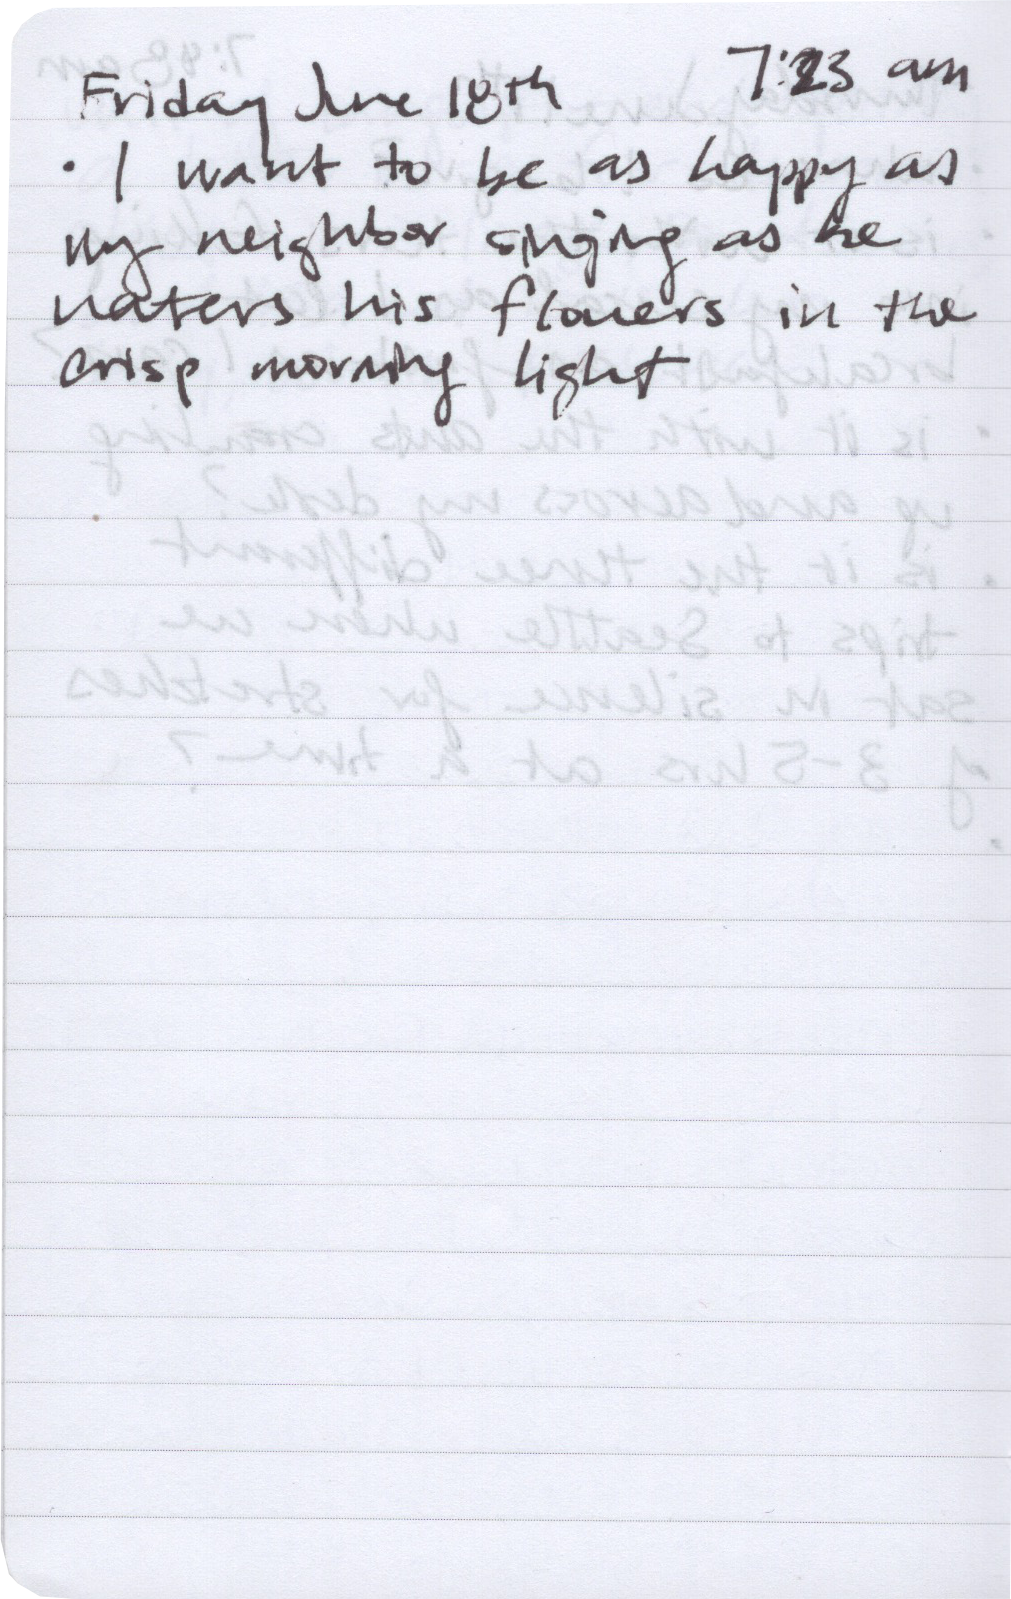 Friday June 18th 7:23 am
· I want to be as happy as
my neighbor singing as he
waters his flowers in the
crisp morning light